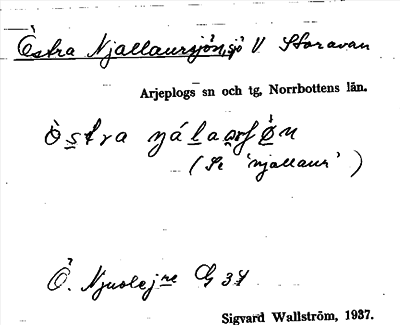 Östra Njallaursjön, sjö V Storavan
Arjeplogs sn och tg, Norrbottens län.
ò s t r a
(Se 'njallaur')
Ö. Njuolejne G 34
Sigvard Wallström, 1937.